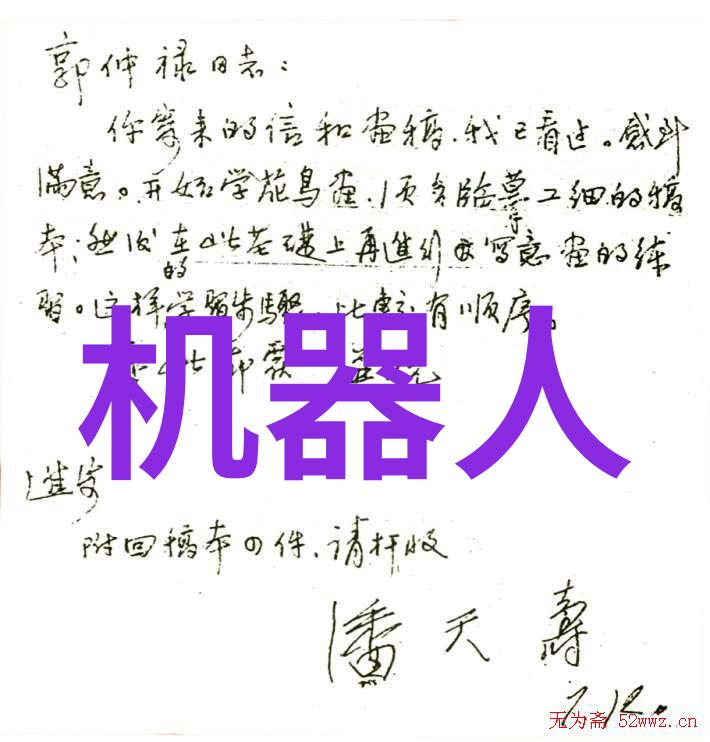 郭仲禄同志：
你寄来的信和画稿，我已看过。感到
满意。开始学花鸟画，须多临摹工细的稿
本；然后在此基礎上再進行写意画的练
的
習。这样学習步驟，比較有順序。
此 覆
机器人
進安
附回稿本四件，请杆收
潘天壽
7.12.
无为斋 52wwz.cn